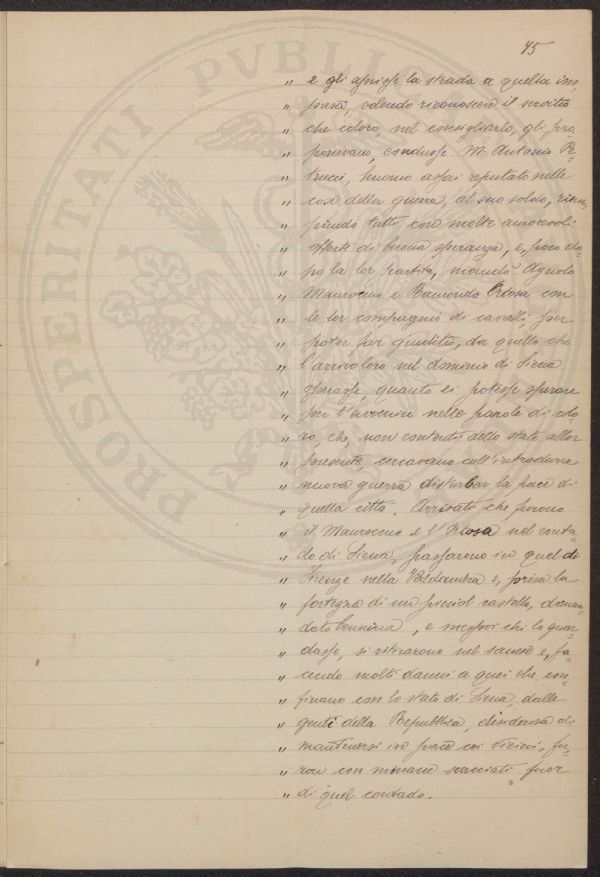 45
PROSPERITATI PVBLICAE
" e gli aprisse la strada a quella im=
" presa, volendo riconoscere il servitio
" che coloro, nel consigliarlo, gli pro=
" ponevano, condusse M. Antonio Pe=
" trucci, huomo assai reputato nelle
" cose della guerra, al suo soldo, riem=
" piendo tutti con molte amorevoli
" offerte di buona speranza, e, poco do=
" po la lor partita, mandò Agnolo
" Mauroceno e Ramondo Ortosa con
" le lor compagnie di cavalli, per
" poter far giuditio, da quello che
" l'arrivo loro nel dominio di Siena
" operasse, quanto ei potesse sperare
" per l'avvenire nelle parole di colo=
" ro, che, non contenti dello stato allor
" presente, cercavano coll'introdurre
" nuova guerra disturbar la pace di
" quella citta. Arrivati che furono
" il Mauroceno e l'Ortosa nel conta=
" do di Siena, passarono in quel di
" Firenze nella Valdambra e, presa la
" fortezza di un picciol castello, doman=
" dato Cennina, e messovi chi lo guar=
" dasse, si ritirarono nel sanese e, fa=
" cendo molti danni a quei che con=
" finano con lo stato di Siena, dalle
" genti della Repubblica, desiderosa di
" mantenersi in pace coi vicini, fu=
" ron con minacce scacciati fuor
" di quel contado.